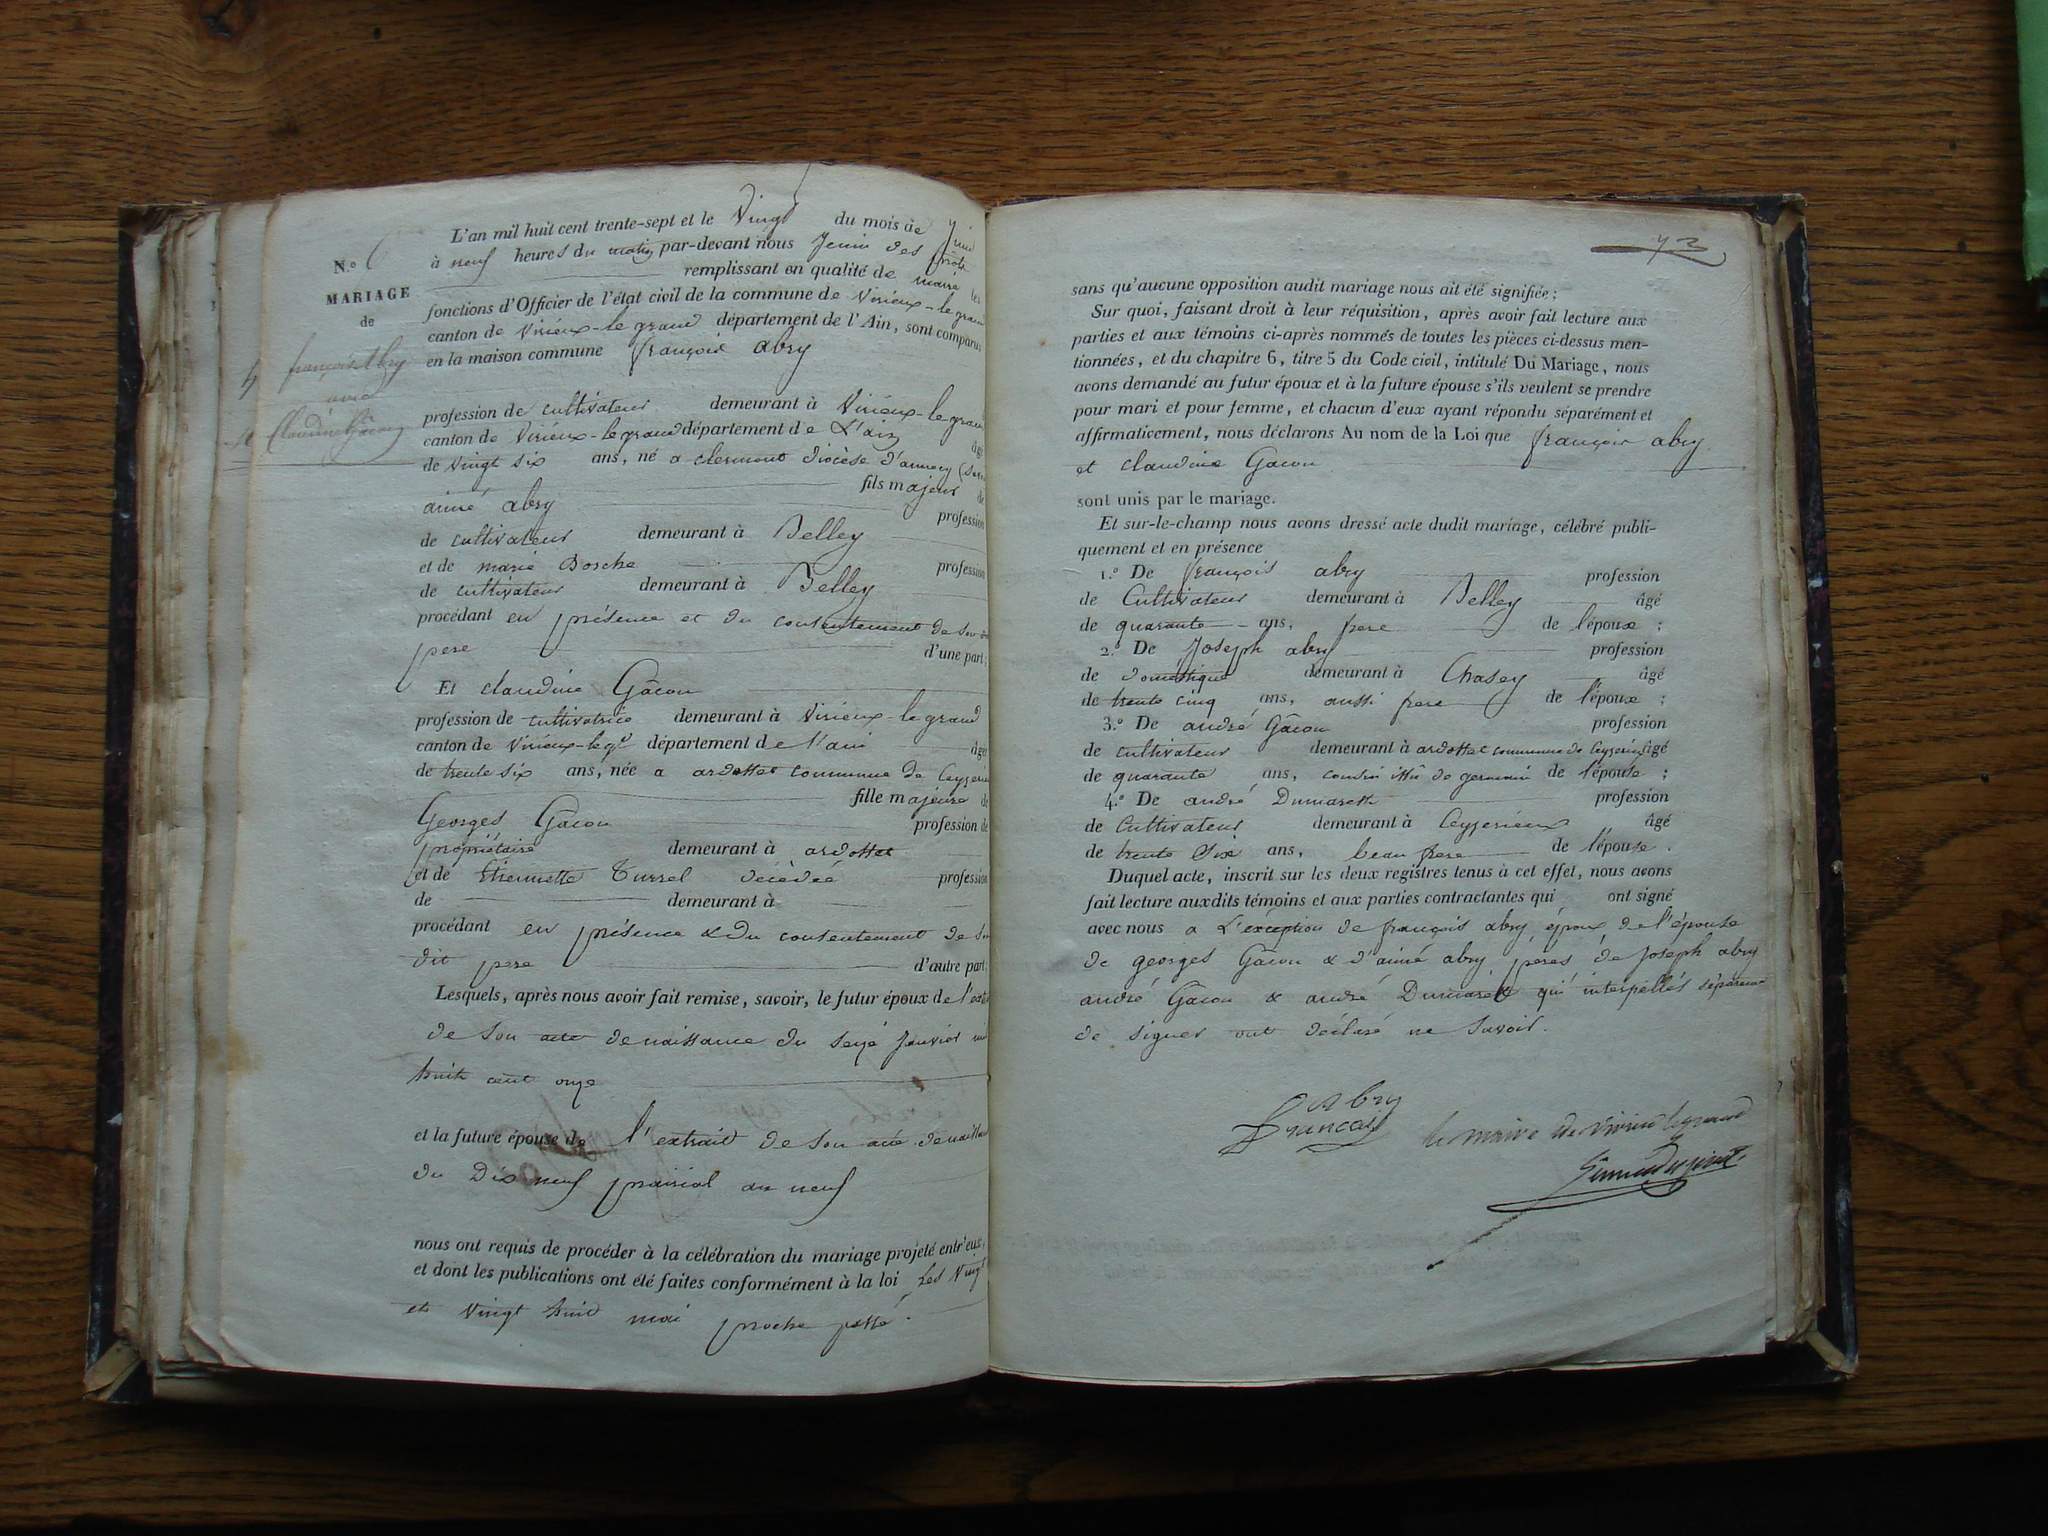 N.o 6
MARIAGE
de
françois Abry
avec
Claudine Gâcon
L'an mil huit cent trente-sept et le Vingt du mois de Juin
à neuf heures du matin par-devant nous
remplissant en qualité de maire les
fonctions d'Officier de l'état civil de la commune de Virieux-le grand
canton de Virieux-le grand département de l'Ain, sont comparus
en la maison commune françois abry
profession de cultivateur demeurant à Virieux-le grand
canton de Virieux-le grand département de L'ain âgé
de vingt six ans, né a clermont diocèse d'annecy
fils majeur de
aimé abry profession
de cultivateur demeurant à Belley
et de marie Bosche profession
de cultivateur demeurant à Belley
procédant en présence et du consentement de son
pere d'une part;
Et claudine Gâcon
profession de cultivatrice demeurant à Virieux-le grand
canton de Virieux-le gd département de l'ain âgée
de trente six ans, née a ardosset commune de Ceyzerieu
fille majeure de
Georges Gâcon profession de
propriétaire demeurant à ardosset
et de Etiennette Turrel décédée profession
de demeurant à
procédant en présence & du consentement de son
dit pere d'autre part;
Lesquels, après nous avoir fait remise, savoir, le futur époux de l'extrait
de son acte de naissance du seize Janvier mil
huit cent onze
et la future épouse de l'extrait de son acte de naissance
du Dix neuf prairial an neuf
nous ont requis de procéder à la célébration du mariage projeté entr'eux,
et dont les publications ont été faites conformément à la loi Les Vingt
et vingt huit mai proche passé.
sans qu'aucune opposition audit mariage nous ait été signifiée;
Sur quoi, faisant droit à leur réquisition, après avoir fait lecture aux
parties et aux témoins ci-après nommés de toutes les pièces ci-dessus men-
tionnées, et du chapitre 6, titre 5 du Code civil, intitulé Du Mariage, nous
avons demandé au futur époux et à la future épouse s'ils veulent se prendre
pour mari et pour femme, et chacun d'eux ayant répondu séparément et
affirmativement, nous déclarons Au nom de la Loi que françois abry
et claudine Gâcon
sont unis par le mariage.
Et sur-le-champ nous avons dressé acte dudit mariage, célébré publi-
quement et en présence
1.o De françois abry profession
de Cultivateur demeurant à Belley âgé
de quarante ans, frere de l'époux;
2.o De Joseph abry profession
de domestique demeurant à Chasey âgé
de trente cinq ans, aussi frere de l'époux;
3.o De andré Gâcon profession
de cultivateur demeurant à ardosset commune de Ceyzerieu âgé
de quarante ans, cousin issu de germain de l'épouse;
4.o De andré Dumareth profession
de Cultivateur demeurant à Ceyzerieux âgé
de trente six ans, beau frere de l'épouse.
Duquel acte, inscrit sur les deux registres tenus à cet effet, nous avons
fait lecture auxdits témoins et aux parties contractantes qui ont signé
avec nous a L'exception de françois abry époux de l'épouse
de georges Gâcon & d'aimé abry peres de Joseph abry
andré Gâcon & andré Dumareth qui interpellés séparement
de signer ont déclaré ne savoir.
Abry
francois
le maire de virieu le grand